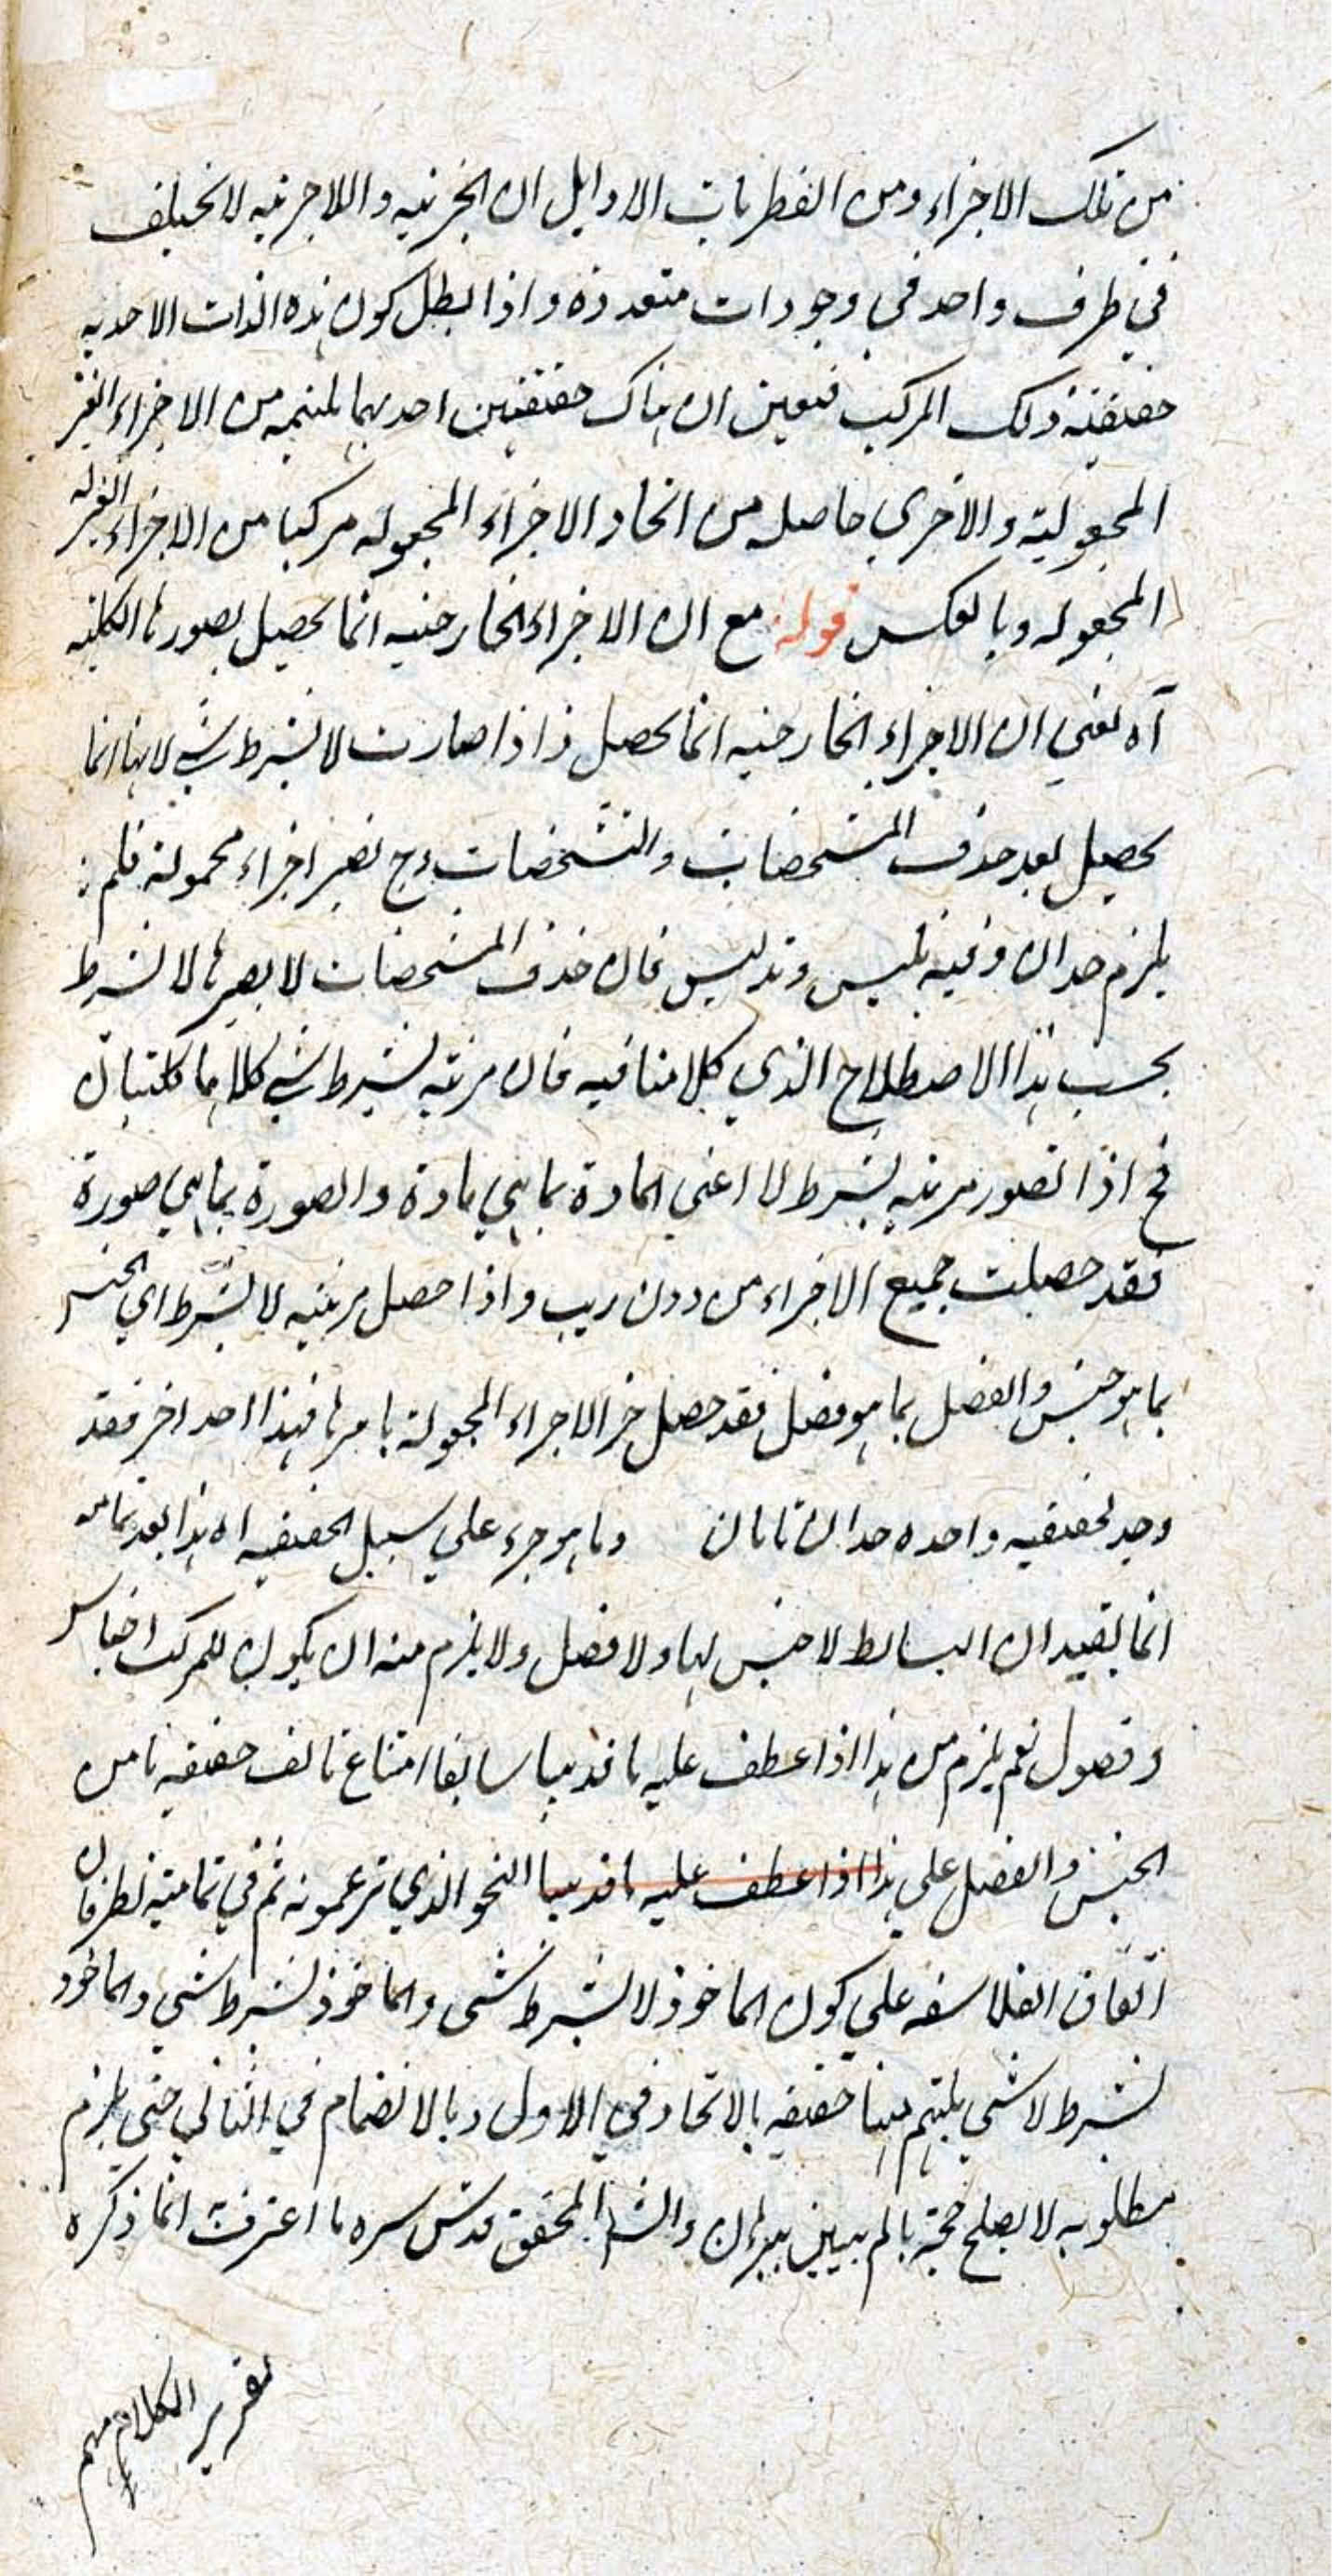 من تلك الاجزاء ومن الفطريات الاوايل ان الجزئيه واللاجزئيه لا تختلف
في ظرف واحد في وجودات متعددة واذا بطل كون هذه الذات الاحديه
حقيقة ذلك المركب فتعين ان هناك حقيقتين احديهما ملتئمه من الاجزاء الغير
المحمولية والاخري حاصله من اتحاد الاجزاء المحموله مركبا من الاجزاء الغير
المحموله وبالعكس قوله مع ان الاجزاء الخارجيه انما تحصل بصورها الكليه
آه يعني ان الاجزاء الخارجيه انما تحصل اذا صارت لا بشرط شي لانها انما
تحصل بعد حذف المشخصات والتشخصات وح تصير اجزاء محمولة فلم
يلزم حدان وفيه تلبيس وتدليس فان حذف المشخصات لا يصيرها لا بشرط
بحسب هذا الاصطلاح الذي كلامنا فيه فان مرتبه بشرط شي كلاهما كليتان
فح اذا تصور مرتبه بشرط لا اعني المادة بما هي مادة والصورة بما هي صورة
فقد حصلت جميع الاجزاء من دون ريب واذا حصل مرتبه لا بشرط اي الجنس
بما هو جنس والفصل بما هو فصل فقد حصل الاجزاء المحمولة باسرها فهذا حد اخر فقد
وجد لحقيقيه واحده حدان تامان وما هو جزء علي سبيل الحقيقيه اه هذا بعد تمامه
انما يفيد ان البسائط لا جنس لها ولا فصل ولا يلزم منه ان يكون للمركب اجناس
وفصول نعم يلزم من هذا اذا عطف عليه ما قد بينا سابقا امتناع تالف حقيقه ما من
الجنس والفصل علي هذا اذا عطف عليه ما قد بينا النحو الذي تزعمونه ثم في تماميته نظر فان
اتفاق الفلاسفه علي كون الماخوذ لا بشرط شي والماخوذ بشرط شي والماخوذ
بشرط لا شي يلتئم منها حقيقه بالاتحاد في الاول وبالانضمام في الثاني حتي يلزم
مطلوبه لا يصلح حجة ما لم يبين ببرهان والشه المحقق قدس سره ما اعترف انما ذكره
تقرير الكلام